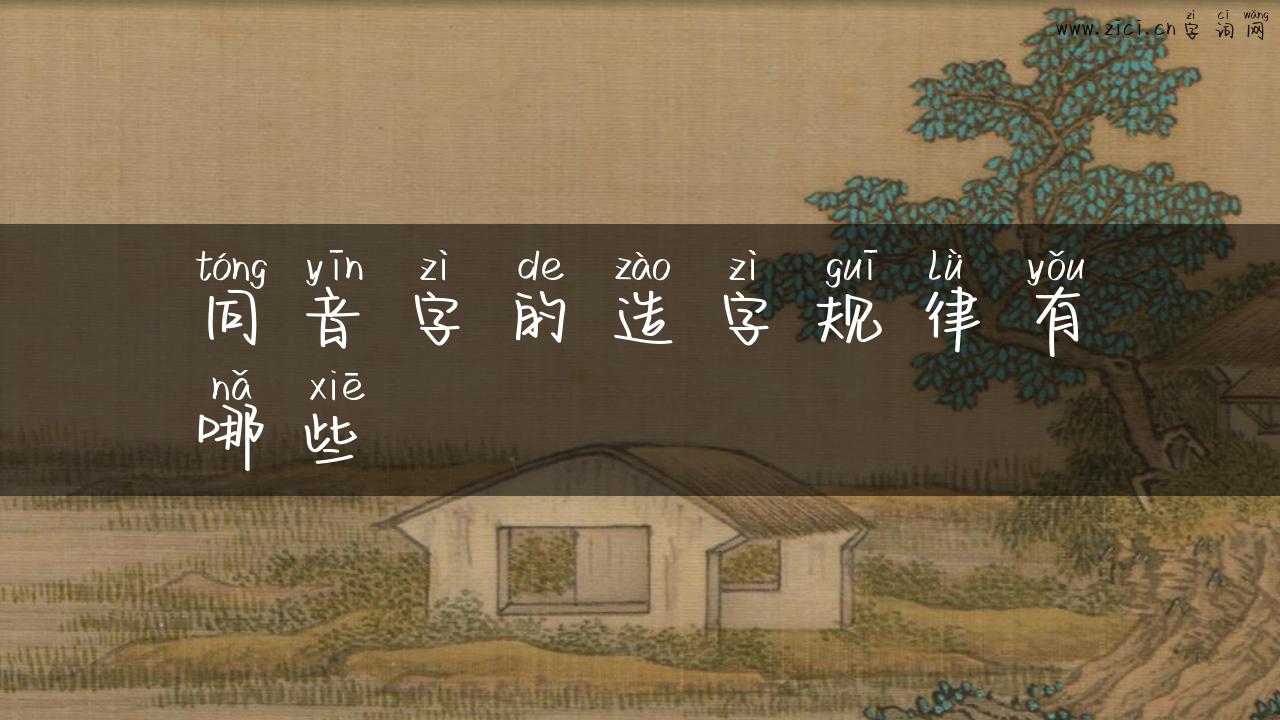 zì cí wǎng
www.zici.cn 字 词 网
tóng yīn zì de zào zì guī lǜ yǒu
同 音 字 的 造 字 规 律 有
nǎ xiē
哪 些